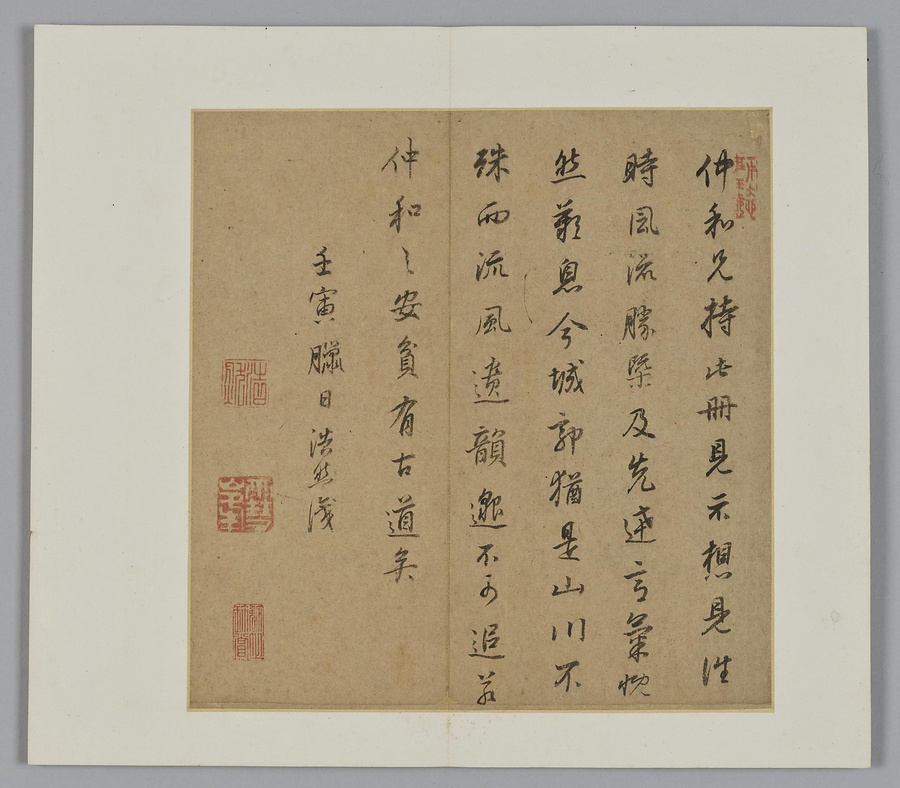 仲和兄持此冊見示想見往
時風流勝槩及先達言氣怳
然歎息今城郭猶是山川不
殊而流風遺韻邈不可追若
仲和之安貧有古道矣
壬寅臘日浩然識